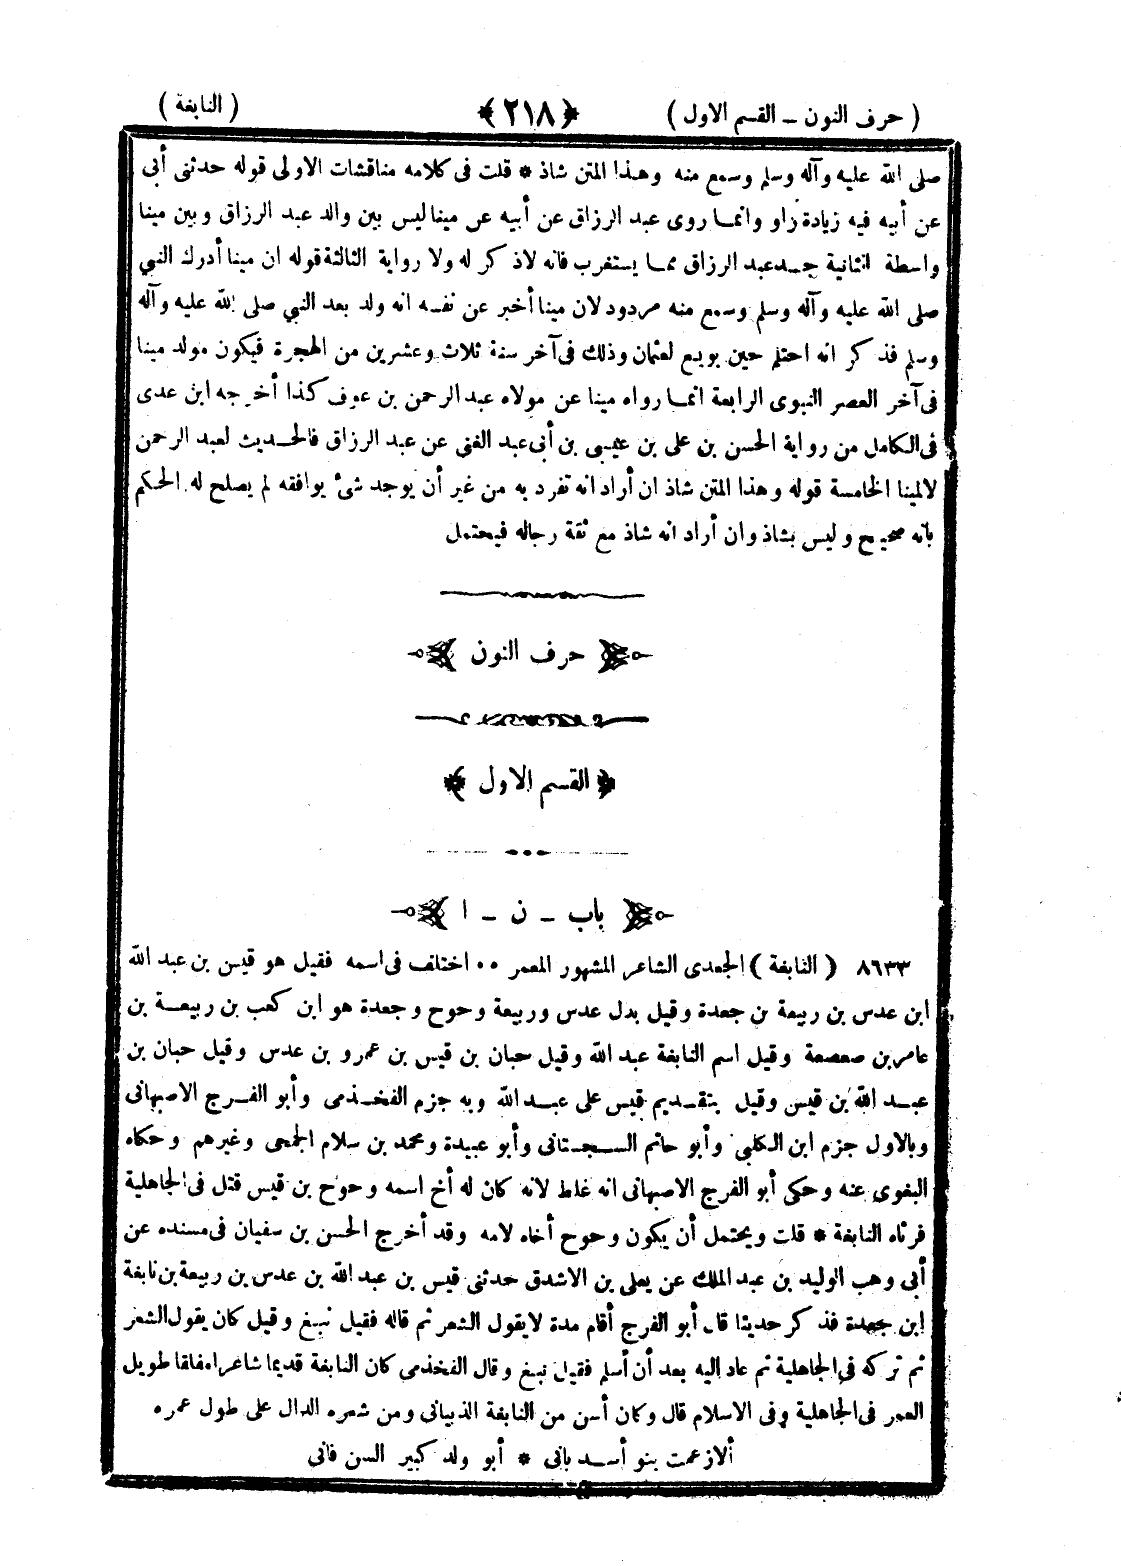 ( حرف النون ــ القسم الاول ) ﴿٢١٨﴾ ( النابغة )
صلى الله عليه وآله وسلم وسمع منه وهذا المتن شاذ * قلت فى كلامه مناقشات الاولى قوله حدثنى أبى
عن أبيه فيه زيادة راو وانما روى عبد الرزاق عن أبيه عن مينا ليس بين والد عبد الرزاق وبين مينا
واسطة الثانية جد عبد الرزاق مما يستغرب فانه لاذكر له ولا رواية الثالثة قوله ان مينا أدرك النبي
صلى الله عليه وآله وسلم وسمع منه مردود لان مينا أخبر عن نفسه انه ولد بعد النبي صلى الله عليه وآله
وسلم فذكر انه احتلم حين بويع لعثمان وذلك فى آخر سنة ثلاث وعشرين من الهجرة فيكون مولد مينا
فى آخر العصر النبوى الرابعة انما رواه مينا عن مولاه عبد الرحمن بن عوف كذا أخرجه ابن عدى
فى الكامل من رواية الحسن بن على بن عيسى بن أبى عبد الغنى عن عبد الرزاق فالحديث لعبد الرحمن
لالمينا الخامسة قوله وهذا المتن شاذ ان أراد انه تفرد به من غير أن يوجد شئ يوافقه لم يصلح له الحكم
بانه صحيح وليس بشاذ وان أراد انه شاذ مع ثقة رجاله فيحتمل
حرف النون
﴿ القسم الاول ﴾
باب ــ ن ــ ا
٨٦٣٣ ( النابغة ) الجعدى الشاعر المشهور المعمر ٠٠ اختلف فى اسمه فقيل هو قيس بن عبد الله
ابن عدس بن ربيعة بن جعدة وقيل بدل عدس وربيعة وحوح وجعدة هو ابن كعب بن ربيعة بن
عامر بن صعصعة وقيل اسم النابغة عبد الله وقيل حبان بن قيس بن عمرو بن عدس وقيل حبان بن
عبد الله بن قيس وقيل بتقديم قيس على عبد الله وبه جزم الفخذمى وأبو الفرج الاصبهانى
وبالاول جزم ابن الكلبي وأبو حاتم السجستانى وأبو عبيدة ومحمد بن سلام الجمحى وغيرهم وحكاه
البغوى عنه وحكى أبو الفرج الاصبهانى انه غلط لانه كان له أخ اسمه وحوح بن قيس قتل فى الجاهلية
فرثاه النابغة * قلت ويحتمل أن يكون وحوح أخاه لامه وقد أخرج الحسن بن سفيان فى مسنده عن
أبى وهب الوليد بن عبد الملك عن يعلى بن الاشدق حدثنى قيس بن عبد الله بن عدس بن ربيعة بن نابغة
ابن جعدة فذكر حديثا قال أبو الفرج أقام مدة لايقول الشعر ثم قاله فقيل نبغ وقيل كان يقول الشعر
ثم تركه فى الجاهلية ثم عاد اليه بعد أن أسلم فقيل نبغ وقال الفخذمى كان النابغة قديما شاعرا مفلقا طويل
العمر فى الجاهلية وفى الاسلام قال وكان أسن من النابغة الذبيانى ومن شعره الدال على طول عمره
ألا زعمت بنو أسد بانى * أبو ولد كبير السن فانى